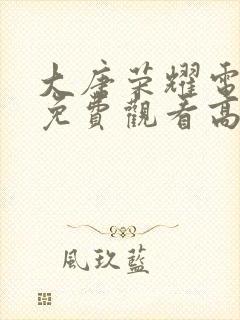 大唐荣耀電
免費觀看高
風玖藍